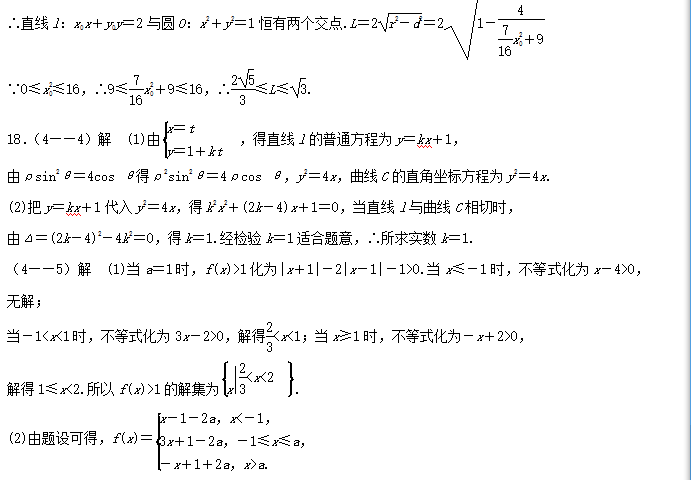 ∴直线 l：x₀x＋y₀y＝2 与圆 O：x²＋y²＝1 恒有两个交点．L＝2√(r²－d²)＝2√(1－4/((7/16)x₀²＋9))
∵0≤x₀²≤16，∴9≤(7/16)x₀²＋9≤16，∴2√5/3≤L≤√3.
18.（4－－4）解 (1)由{x＝t y＝1＋kt ，得直线 l 的普通方程为 y＝kx＋1，
由ρsin²θ＝4cos θ得ρ²sin²θ＝4ρcos θ，y²＝4x，曲线 C 的直角坐标方程为 y²＝4x.
(2)把 y＝kx＋1 代入 y²＝4x，得 k²x²＋(2k－4)x＋1＝0，当直线 l 与曲线 C 相切时，
由Δ＝(2k－4)²－4k²＝0，得 k＝1.经检验 k＝1 适合题意，∴所求实数 k＝1.
（4－－5）解 (1)当 a＝1 时，f(x)>1 化为|x＋1|－2|x－1|－1>0.当 x≤－1 时，不等式化为 x－4>0，
无解；
当－1<x<1 时，不等式化为 3x－2>0，解得2/3<x<1；当 x≥1 时，不等式化为－x＋2>0，
解得 1≤x<2.所以 f(x)>1 的解集为{x|2/3<x<2 }.
(2)由题设可得，f(x)＝{x－1－2a，x<－1，
3x＋1－2a，－1≤x≤a，
－x＋1＋2a，x>a.